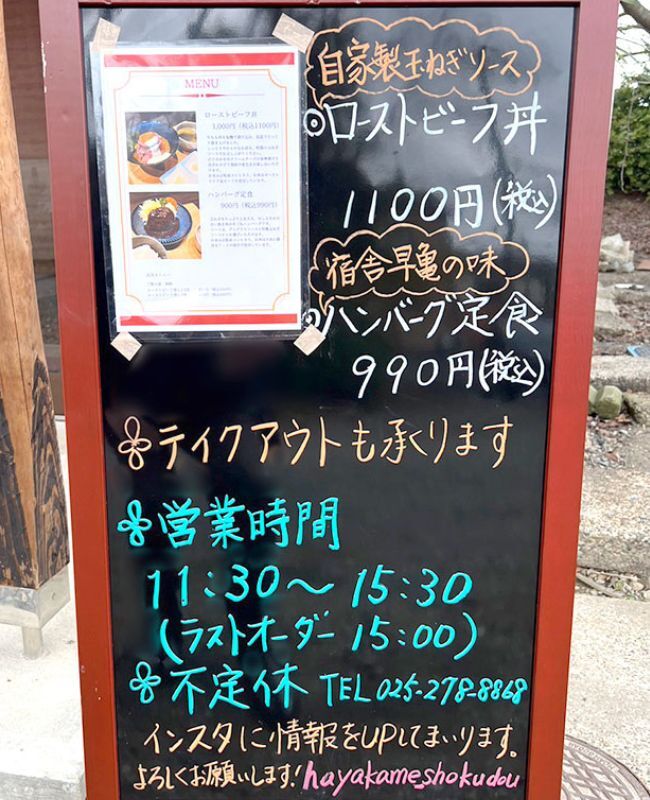 MENU
ローストビーフ丼
1,000円（税込1100円）
ハンバーグ定食
900円（税込990円）
自家製玉ねぎソース
ローストビーフ丼
1100円(税込)
宿舎早亀の味
ハンバーグ定食
990円(税込)
テイクアウトも承ります
営業時間
11:30〜15:30
(ラストオーダー 15:00)
不定休 TEL 025-278-8868
インスタに情報をUPしてまいります。
よろしくお願いします! hayakameshokudou